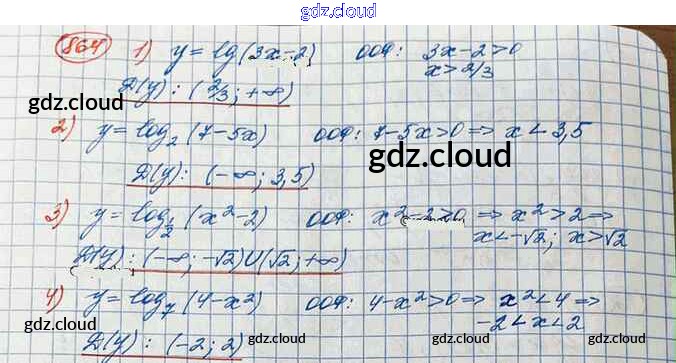 gdz.cloud
864 1) y = lg(3x-2) ООФ: 3x-2>0
x > 2/3
Д(y): (2/3; +∞)
gdz.cloud
2) y = log₂(7-5x) ООФ: 7-5x>0 => x < 3,5
gdz.cloud
Д(y): (-∞; 3,5)
3) y = log_{1/2}(x²-2) ООФ: x²-2>0 => x²>2 =>
x<-√2; x>√2
Д(y): (-∞; -√2)U(√2; +∞)
gdz.cloud
4) y = log₇(4-x²) ООФ: 4-x²>0 => x²<4 =>
-2<x<2
gdz.cloud
Д(y): (-2; 2)
gdz.cloud gdz.cloud gdz.cloud